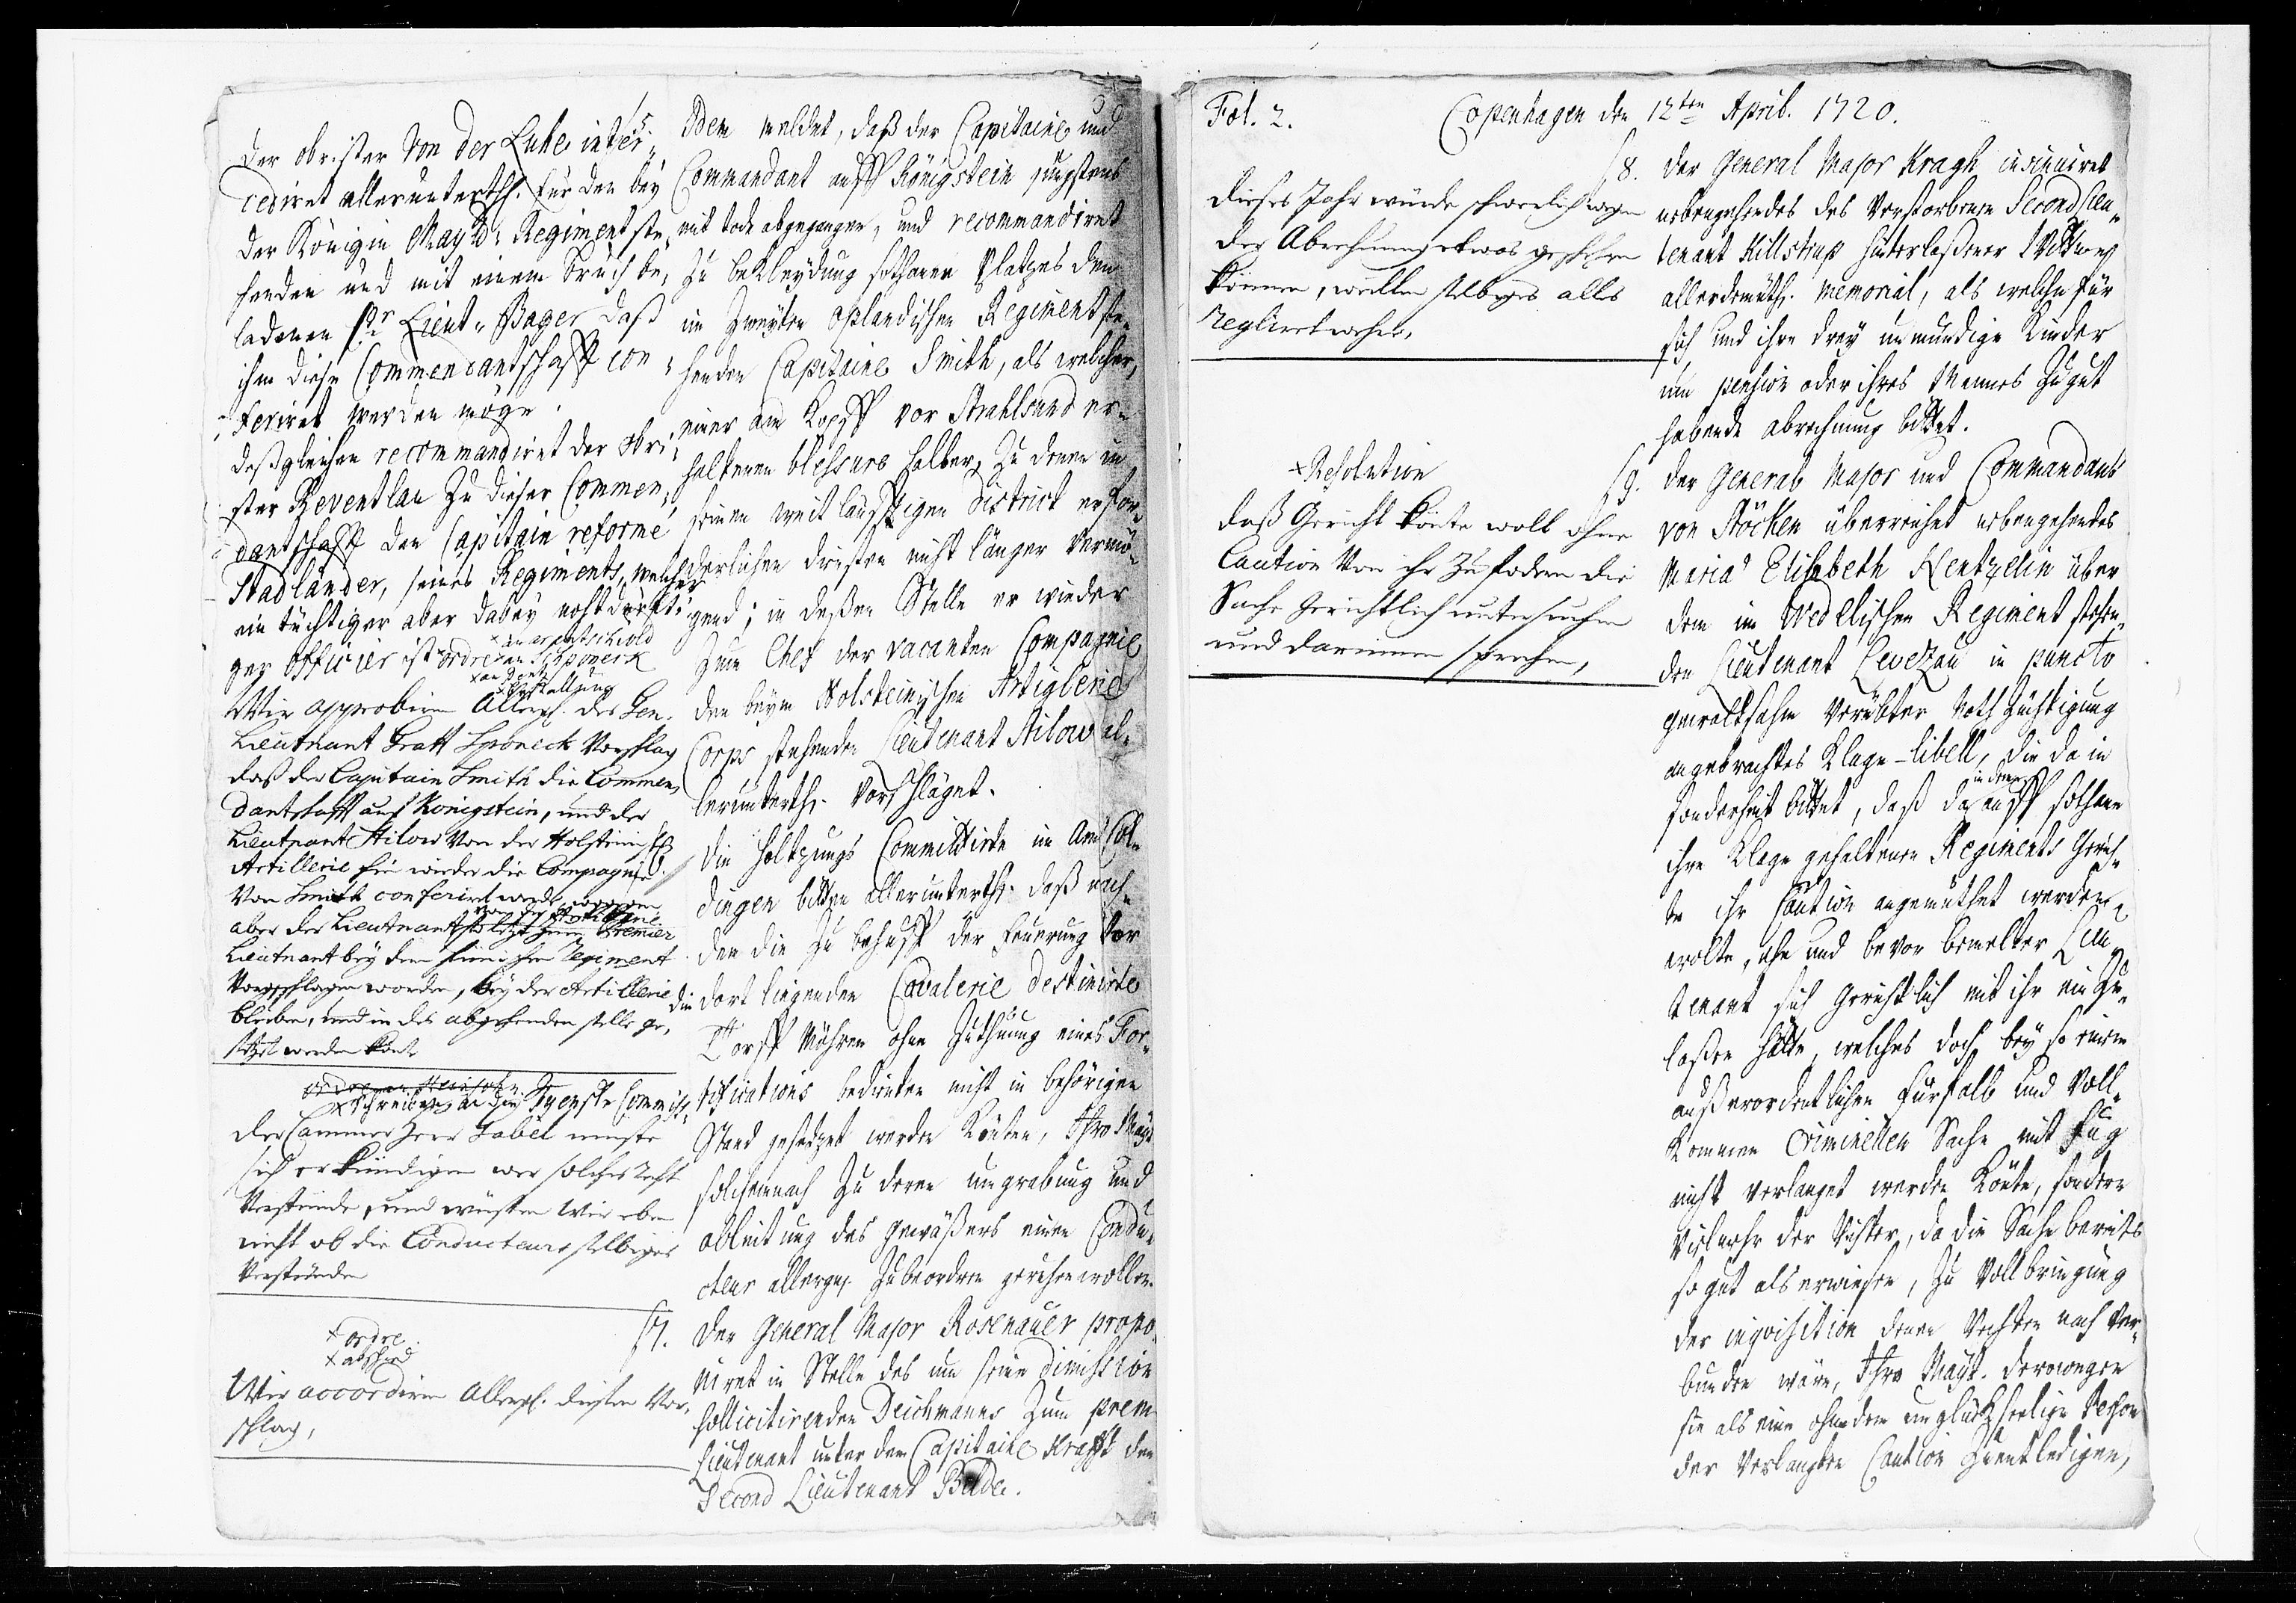 Der obrister Von der Luhe inter-
cediret allerunterth. für den bey
der Königin May.t Regiment ste-
henden und mit einem bruch be-
ladenen Pr. Lieut. Bager daß
ihm diese Commendantschafft con-
feriret werden möge.
deßgleichen recommandiret der Obri-
ster Reventlau zu dieser Commen-
dantschafft den Capitain reformé
Stadländer, seines Regiments, welcher
ein tüchtiger aber dabey nohtdürfti-
ger Officier ist
ordre an Sponeck
Wir approbiren Allergn. des Gen.
Lieutnant Graff Sponeck Vorschlag
daß der Capitain Smith die Commen-
dantschafft auf Königstein, und der
Lieutnant Stilow Von der Holsteinsch
Artillerie hin wieder die Compagnie
Von Smith conferiret werde,
aber der Lieutnant
Premier
Lieutnant bey dem Regiment
Vorgeschlagen worden, bey der Artillerie
bleiben, und in des abgehenden stelle ge-
setzet werden könte
Schreiben an die Commiss.
Der Cammer Herr Gabel muste
sich erkundigen wer solches recht
Verstünde, und wüsten Wir eben
nicht ob die Conducteurs selbiges
Verstünden
x ordre
x abschied
Wir accordiren Allergn. diesen Vor-
schlag,
5.
Idem meldet, daß der Capitaine und
Commandant auff Königstein jüngstens
mit tode abgegangen, und recommandiret
zu bekleydung sothanen Platzes den
im Zweyten Oplandischen Regiment ste-
henden Capitaine Smith, als welcher,
einer am Kopff vor Strahlsund er-
haltenen blessure halber, zu denen in
seinen weitläufftigen District erfor-
derlichen diensten nicht länger vermö-
gend; in deßen Stelle er wieder
zum Chef der vacanten Compagnie
den beym Holsteinischen Artiglerie
Corps stehenden Lieutenant Stilow al-
lerunterth. vorschläget.
6.
Die Holtzungs Committirte im Amt Col-
dingen bitten allerunterth. daß nach-
dem die zu behuff der Feuerung vor
die dort liegenden Cavalerie destinirte
Torff Möhren ohne Zuthuung eines For-
tifications bedienten nicht in behörigen
Stand gesetzet werden könten, Ihro Mayt.
solchemnach zu deren umgrabung und
ableitung des gewäßers einen Condu-
cteur allergn. zu beordren geruhen wollen.
7.
Der General Major Rosenauer propo-
niret in Stelle des um seine dimission
sollicitirenden Deichmanns zum prem.
Lieutenant unter dem Capitaine Krafft den
Second Lieutenant Bade.
Fol. 2.
Copenhagen den 12ten April. 1720.
Dieses Jahr würde schwerlich wegen
der Abrechnung etwas geschehen
können, wellen selbiges alles
regliert
x Resolution
Daß Gericht könte woll ohne
Caution Von ihr zu fodern die
Sache Gerichtlich untersuchen
und darinnen sprechen,
8.
Der General Major Kragh insinuiret
nebengehendes des Verstorbenen Second Lieu-
tenant Killstrup hinterlaßener Wittwen
allerdemüth. memorial, als welche für
sich und ihre drey unmündige Kinder
um pension oder ihres Mannes zu gut
habende abrechnung bittet.
9.
Der General Major und Commandant
von Stöcken überreichet nebengehendes
Maria Elisabeth Hentzelin über
dem im Wedellischen Regiment stehen-
den Lieutenant Levetzau in puncto
gewaltsahm verübter Nothzüchtigung
angebrachtes Klage-libell, die da in
sonderheit bittet, daß da in dem auff sothane
ihre Klage gehaltenen Regiments Gerich-
te ihr Caution angemuthet werden
wolte, ehe und bevor bemelter Lieu-
tenant sich gerichtlich mit ihr einzu-
laßen hätte, welches doch bey so einem
außerordentlichen fürfall und voll-
kommen Criminellen Sache mit Fug
nicht verlanget werden könte, sondern
vielmehr der Richter, da die Sache bereits
so gut als erwiesen, zu vollbringung
der inquisition denen Rechten nach ver-
bunden wäre, Ihro Mayt. derowegen
sie als eine ohne dem unglückseelige Person
der verlangten Caution zu entledigen,